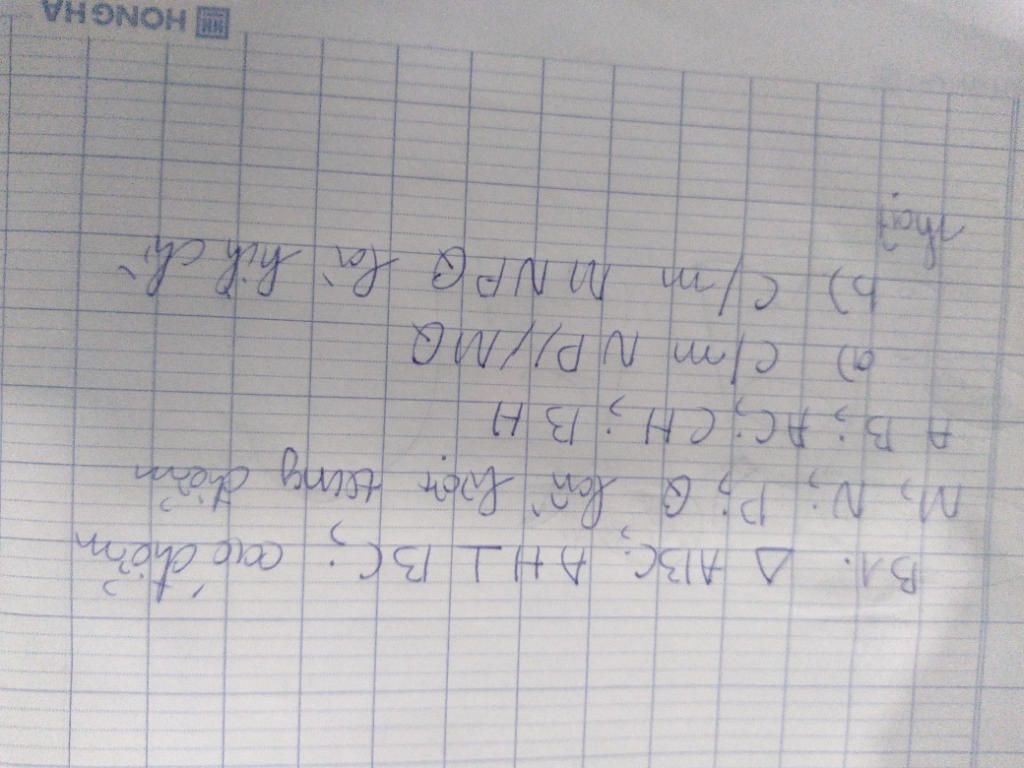 B1. Δ ABC; AH ⊥ BC; các điểm
M, N; P; Q lần lượt trung điểm
AB; AC; CH; BH
a) C/m NP//MQ
b) C/m MNPQ là hìh chữ
nhật
HONG HA